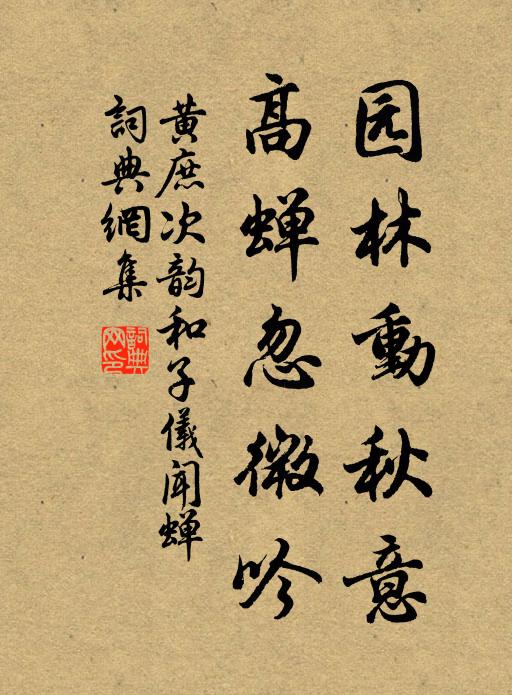 园林動秋意
高蝉忽微吟
黄庶次韵和子儀闻蝉
詞典網集
詞典网印